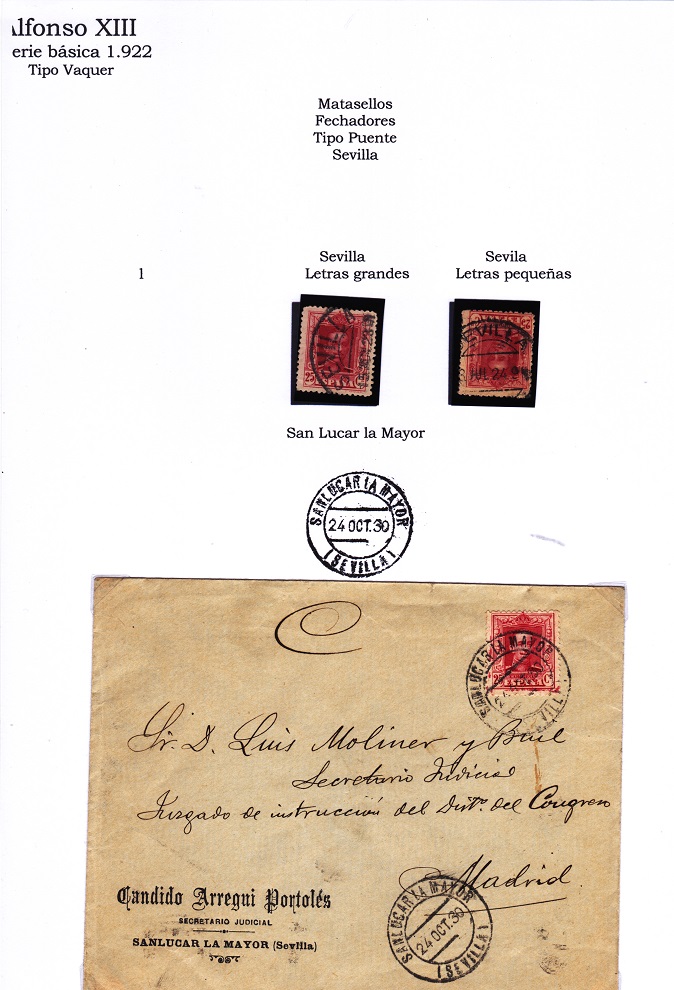 lfonso XIII
erie básica 1.922
Tipo Vaquer
Matasellos
Fechadores
Tipo Puente
Sevilla
1
Sevilla
Letras grandes
Sevila
Letras pequeñas
SEVILLA
25
SEVILLA
JUL 24
San Lucar la Mayor
SANLUCAR LA MAYOR
24 OCT. 30
(SEVILLA)
SANLUCAR LA MAYOR
25
Sr. D. Luis Moliner y
Secretario Judicial
Juzgado de instrucción del Disto. del Congreso
Madrid.
Candido Arregui Portolés
SECRETARIO JUDICIAL
SANLUCAR LA MAYOR (Sevilla)
SANLUCAR LA MAYOR
24 OCT. 30
(SEVILLA)